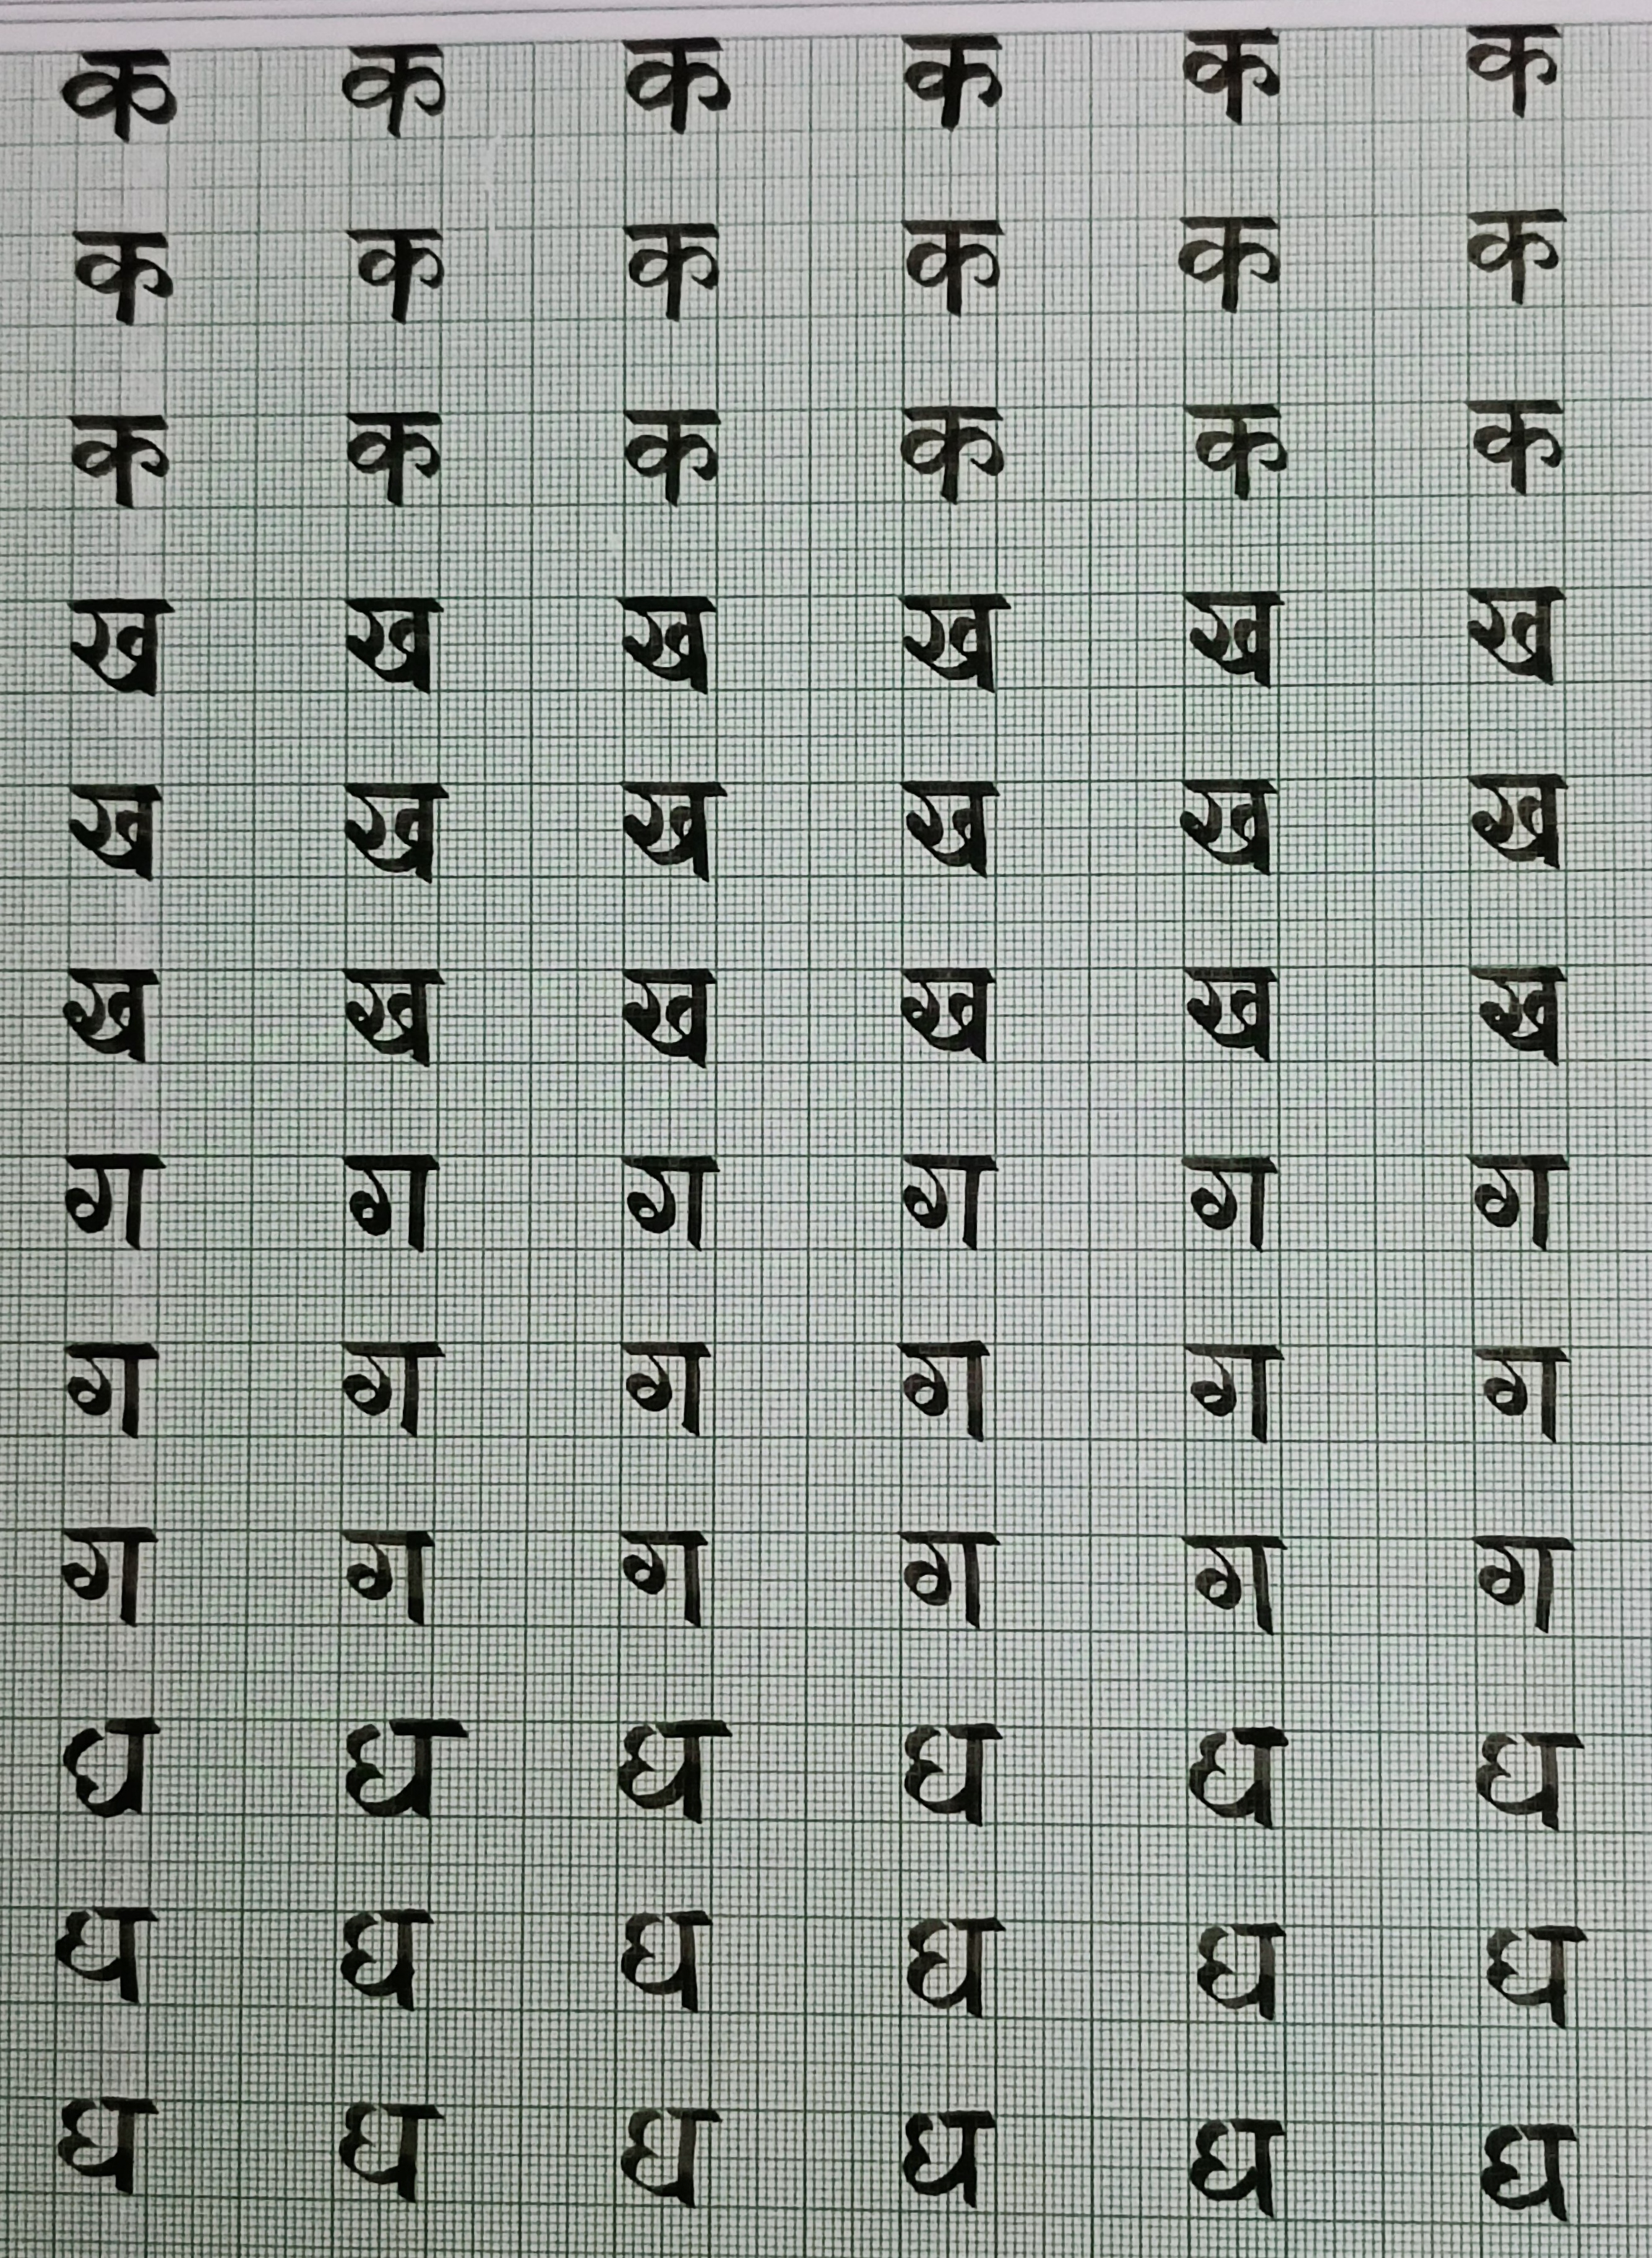 क क क क क क
क क क क क क
क क क क क क
ख ख ख ख ख ख
ख ख ख ख ख ख
ख ख ख ख ख ख
ग ग ग ग ग ग
ग ग ग ग ग ग
ग ग ग ग ग ग
घ घ घ घ घ घ
घ घ घ घ घ घ
घ घ घ घ घ घ